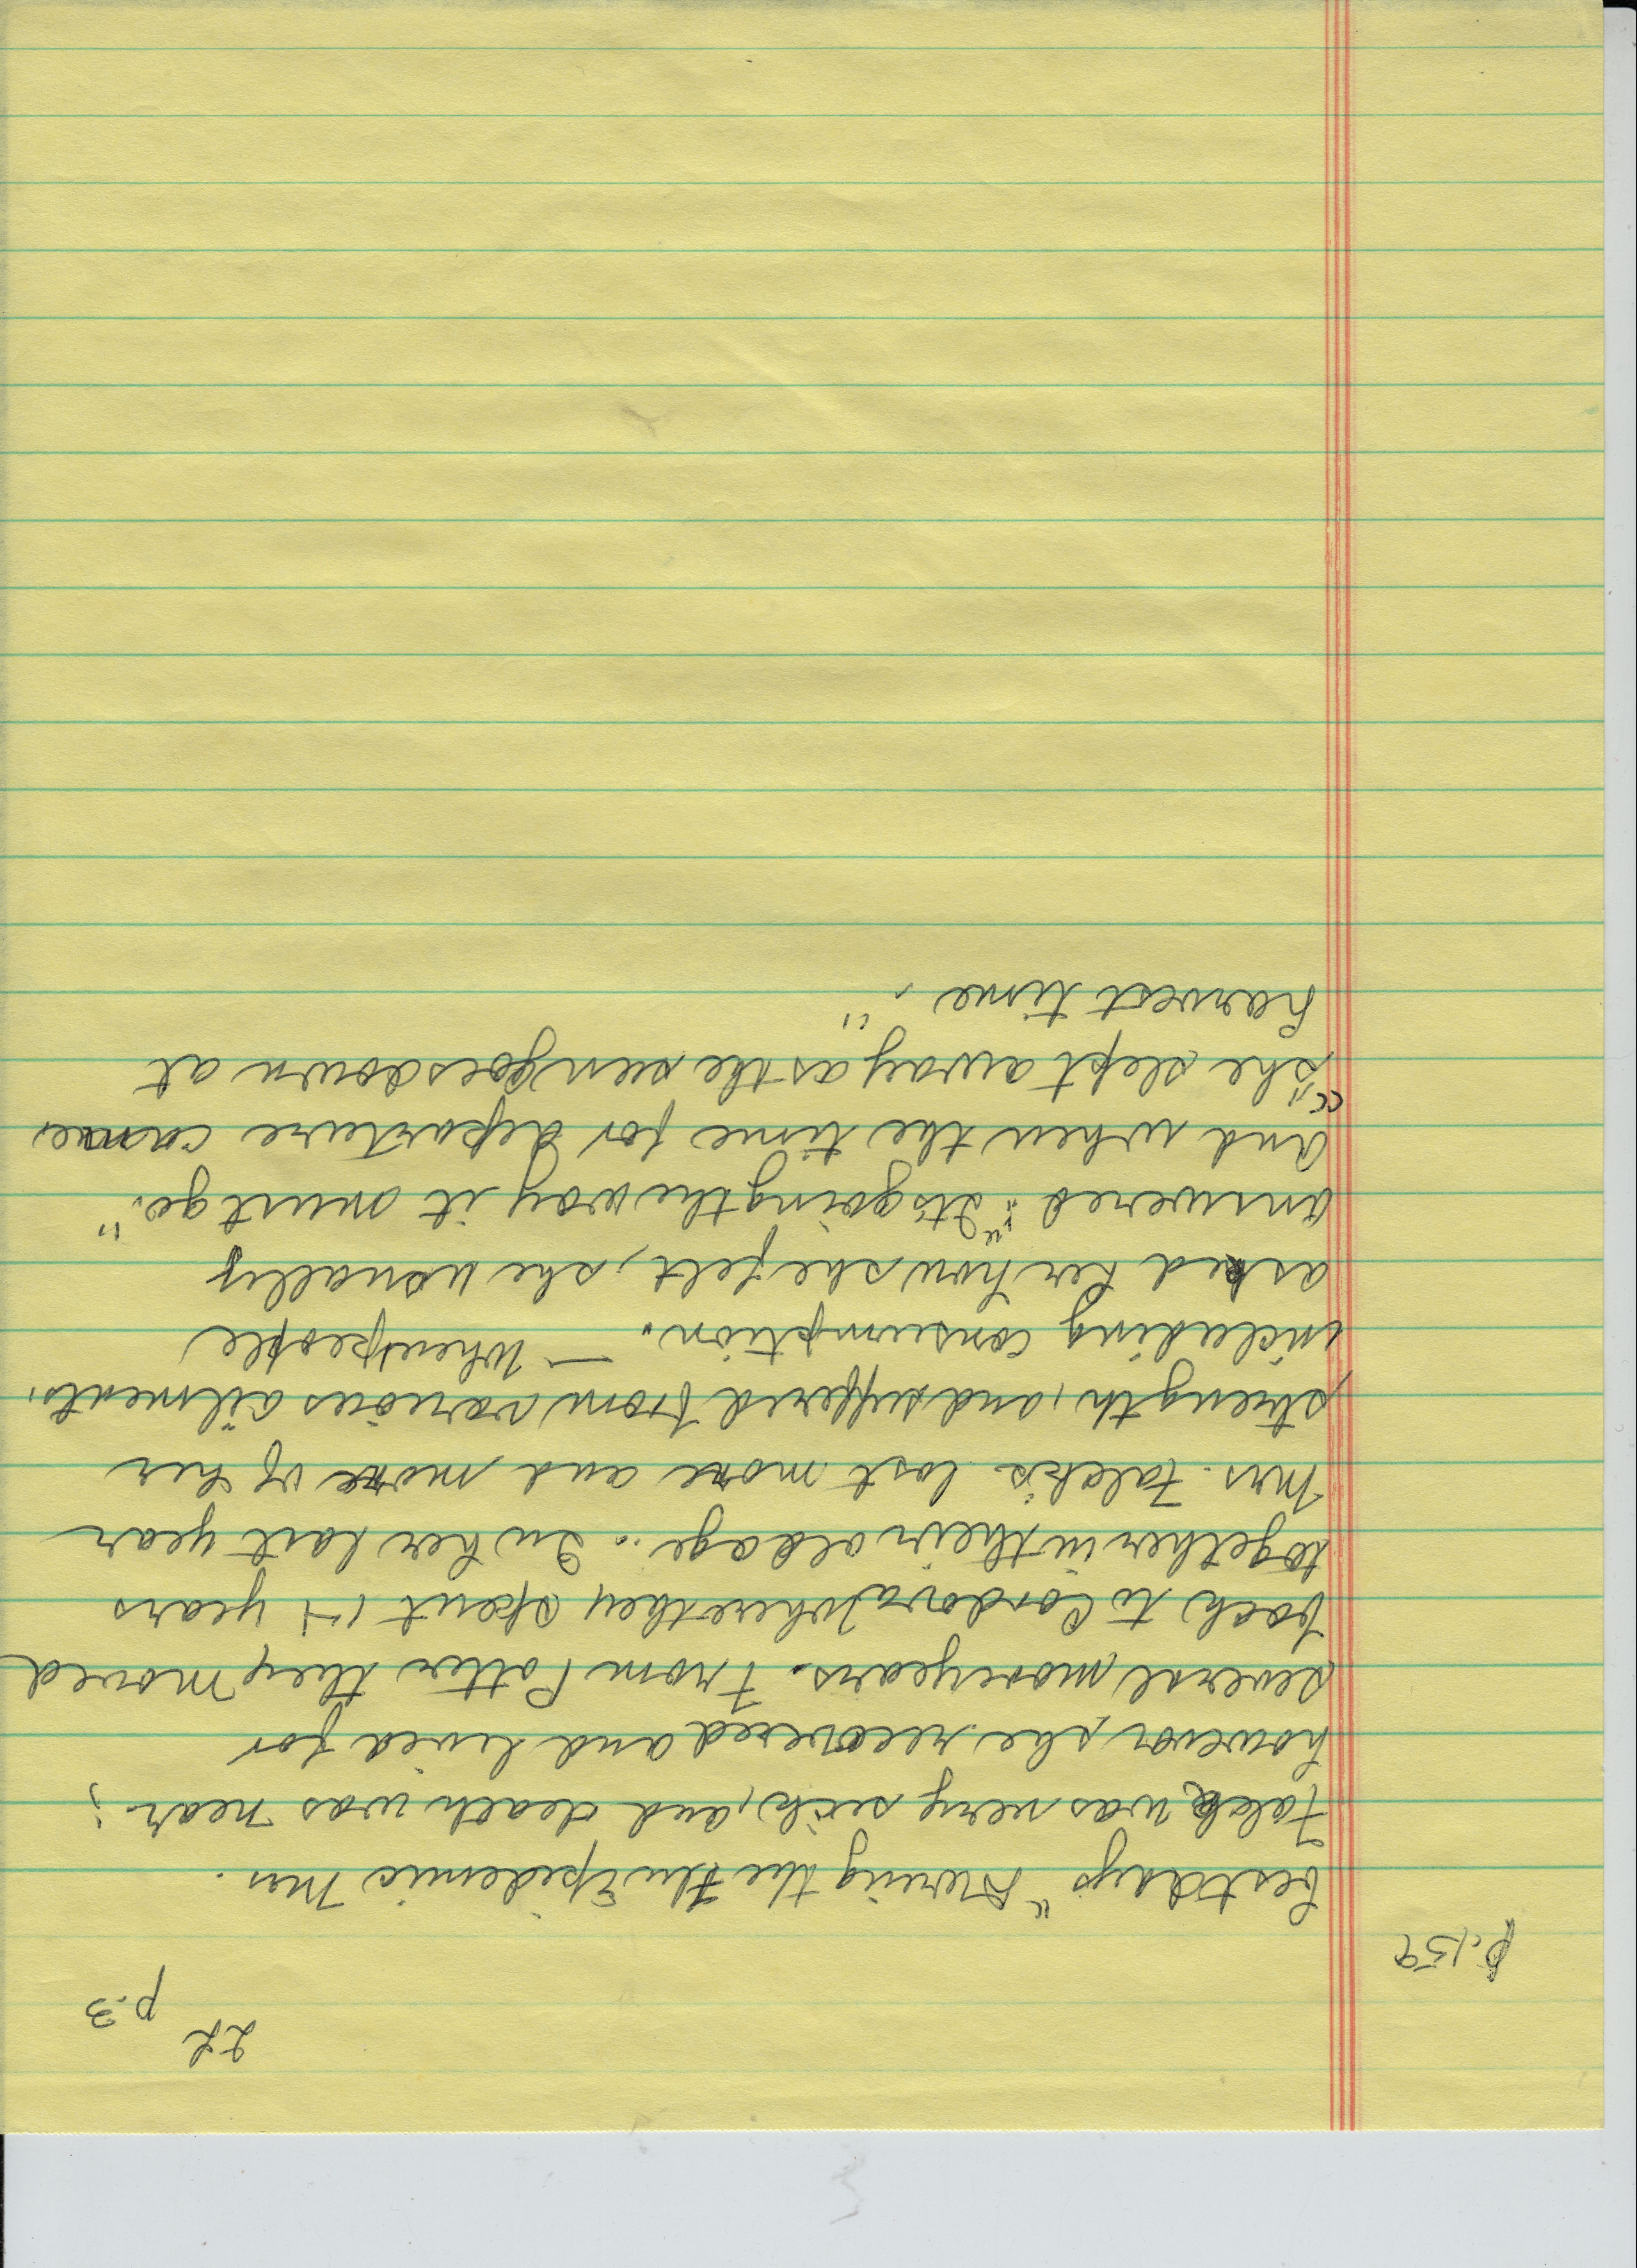 LL
p.3
p.159
best days" During the Flu Epidemic Mrs.
Falck was very sick, and death was near;
however, she recovered and lived for
several more years. From Potter they moved
back to Cordova where they spent 14 years
together in their old age.. In her last year
Mrs. Falck's lost more and more of her
strength, and suffered from various ailments,
including consumption. — When people
asked her how she felt, she usually
answered: "It's going the way it must go."
And when the time for departure came,
"she slept away as the sun goes down at
harvest time."